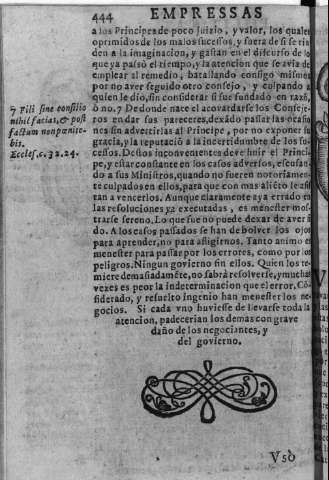 444 EMPRESSAS
a los Principes de poco juizio, y valor, los quales
oprimidos de los malos sucessos, y fuera de si se rin
den a la imaginacion, y gastan en el discurso de lo
que ya passò el tiempo, y la atencion que se avia de
emplear al remedio, batallando consigo mismos
por no aver seguido otro consejo, y culpando a
quien le dio, sin considerar si fue fundado en razõ,
ò no. 7 De donde nace el acovardarse los Conseje-
ros en dar sus pareceres, dexãdo passar las ocasio
nes sin advertirlas al Principe, por no exponer su
gracia, y la reputaciõ a la incertidumbre de los su-
cessos. Destos inconvenientes deve huir el Princi-
pe, y estar constante en los casos adversos, escusan-
do a sus Ministros, quando no fueren notoriamen-
te culpados en ellos, para que con mas aliẽto le asis
tan a vencerlos. Aunque claramente aya errado en
las resoluciones ya executadas, es menester mos-
trarse sereno. Lo que fue no puede dexar de aver si
do. A los casos passados se han de bolver los ojos
para aprender, no para afligirnos. Tanto animo es
menester para passar por los errores, como por los
peligros. Ningun govierno sin ellos. Quien los te-
miere demasiadamẽte, no sabrà resolverse, y muchas
vezes es peor la indeterminacion que el error. Cõ-
siderado, y resuelto ingenio han menester los ne-
gocios. Si cada uno huviesse de llevarse toda la
atencion, padecerian los demas con grave
daño de los negociantes, y
del govierno.
7 Fili sine consilio
nihil facias, & post
factum non pœnite-
bis.
Eccles. c. 32. 24.
Vsò